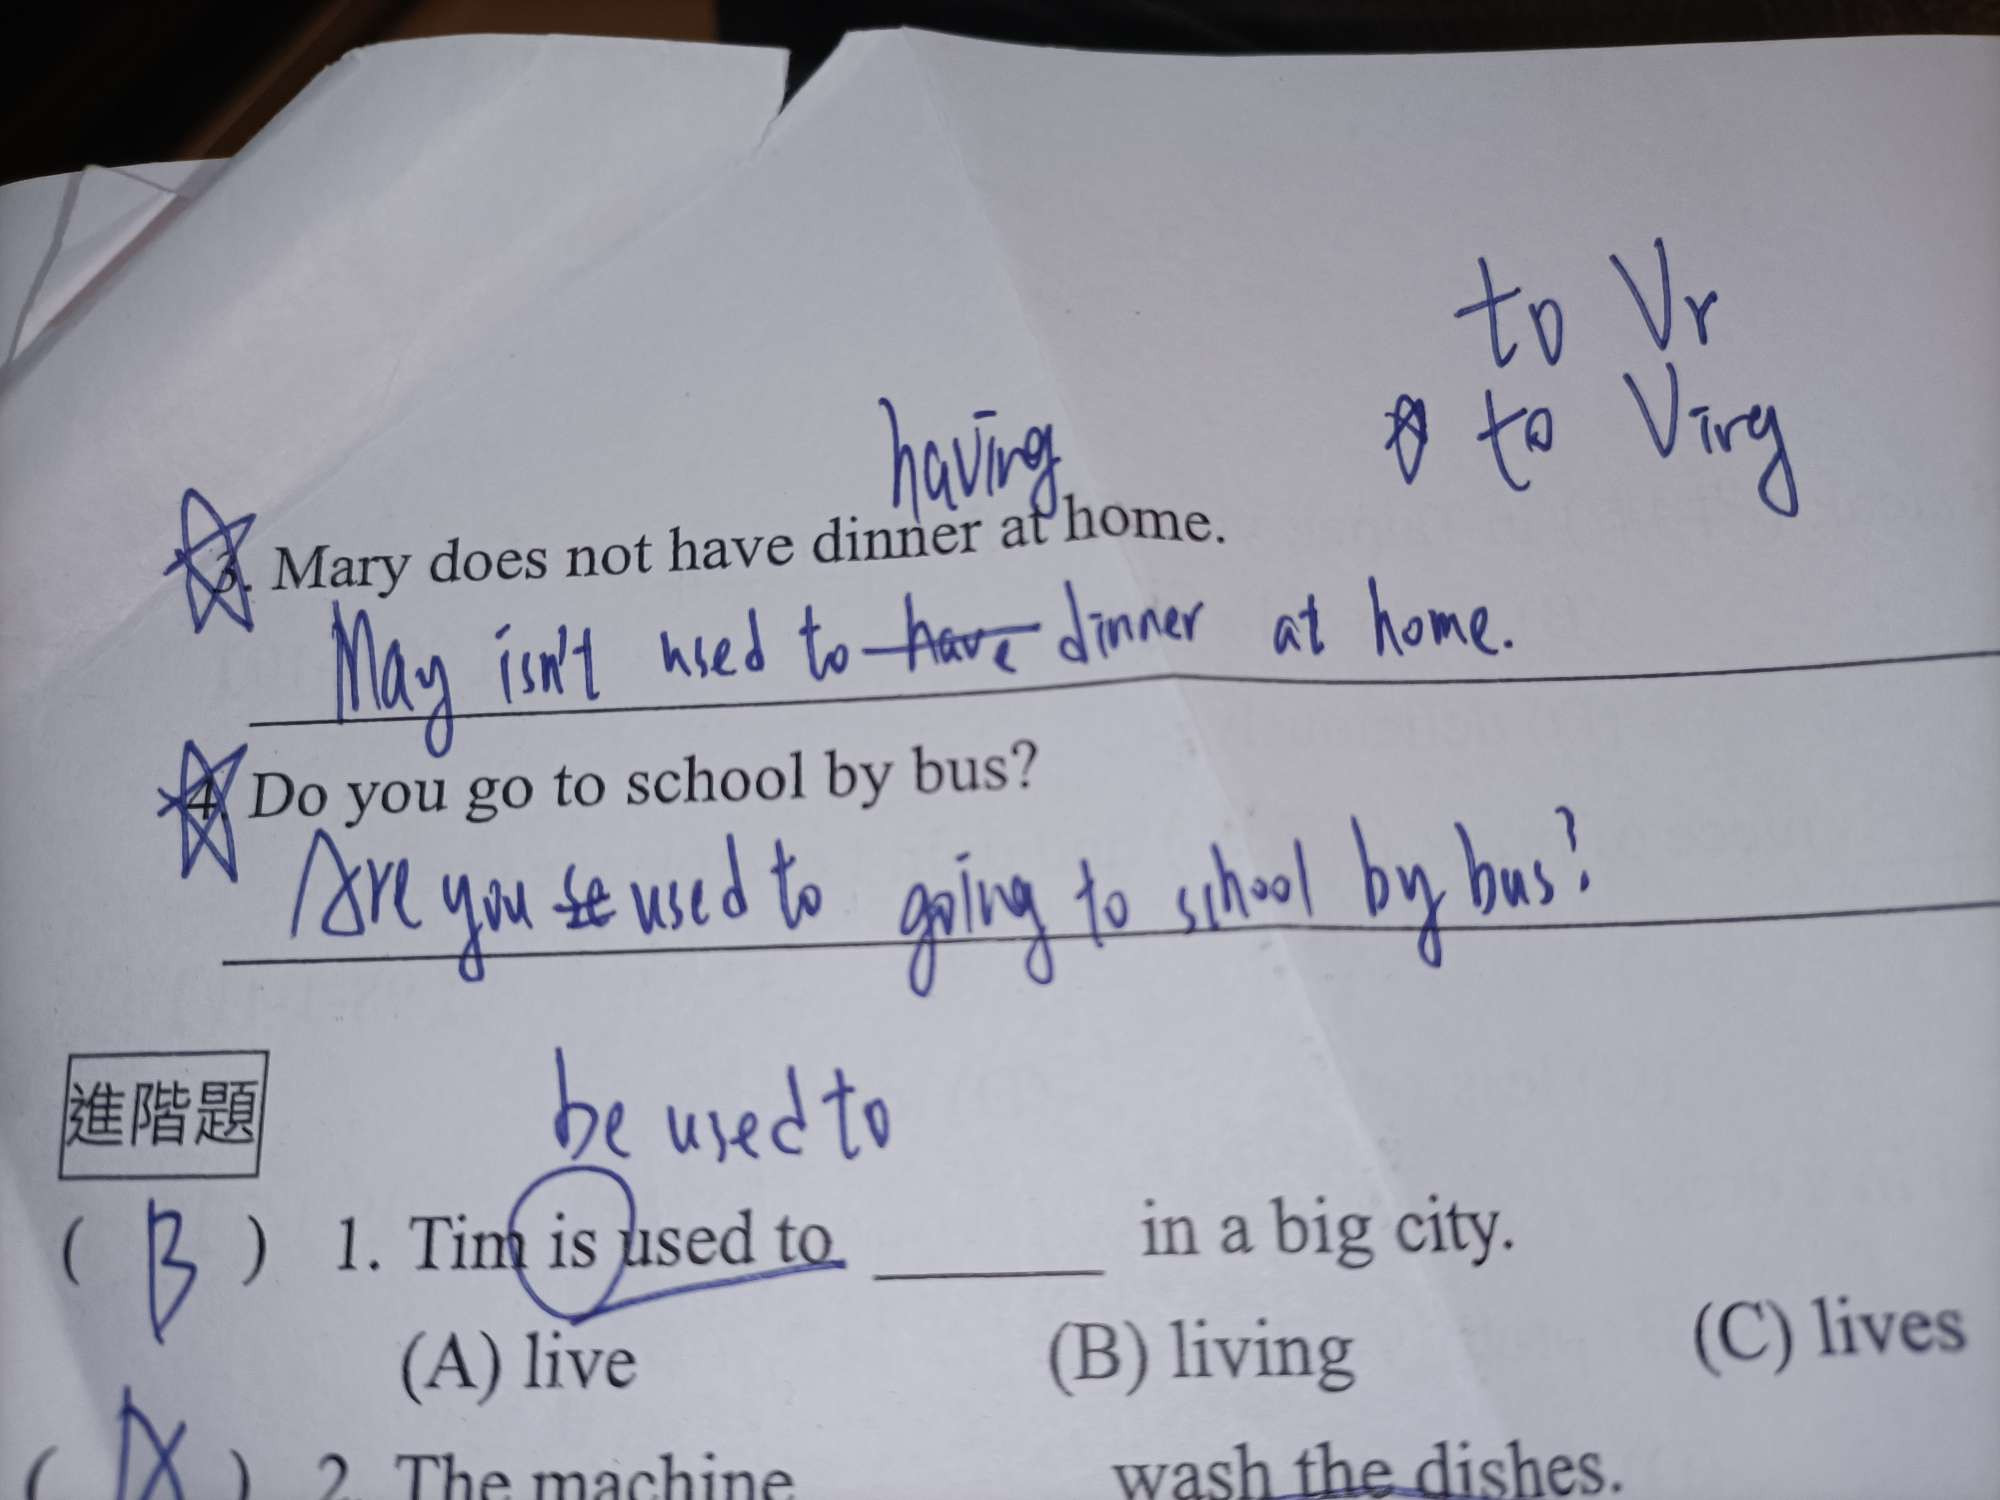 to Vr
☆ to Ving
having
3. Mary does not have dinner at home.
May isn't used to have dinner at home.
4. Do you go to school by bus?
Are you used to going to school by bus?
進階題
be used to
( B ) 1. Tim is used to ______ in a big city.
(A) live (B) living (C) lives
( ) 2. The machine wash the dishes.